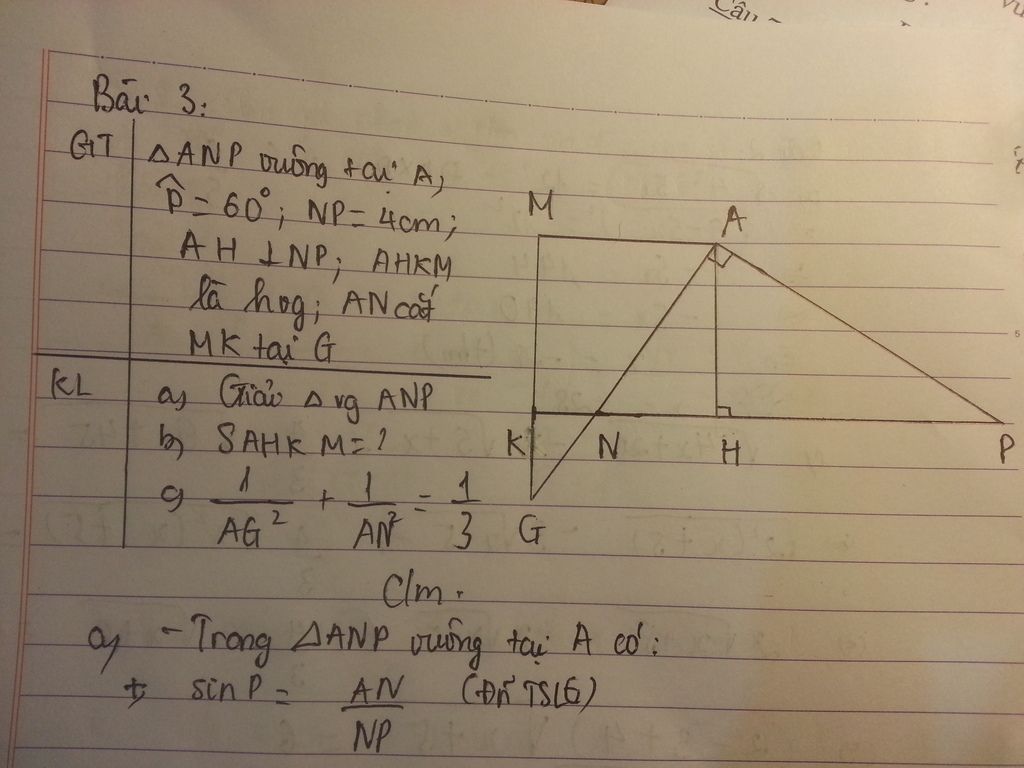 Cân
Bài 3:
GT ΔANP vuông tại A,
P̂ = 60°; NP = 4cm;
AH ⊥ NP; AHKM
là hvg; AN cắt
MK tại G
KL a, Giải Δ vg ANP
b, SAHKM = ?
c, 1/AG² + 1/AN² = 1/3
M A
K N H P
G
5
C/m.
a, - Trong ΔANP vuông tại A có:
+, sin P = AN/NP (ĐN TSLG)